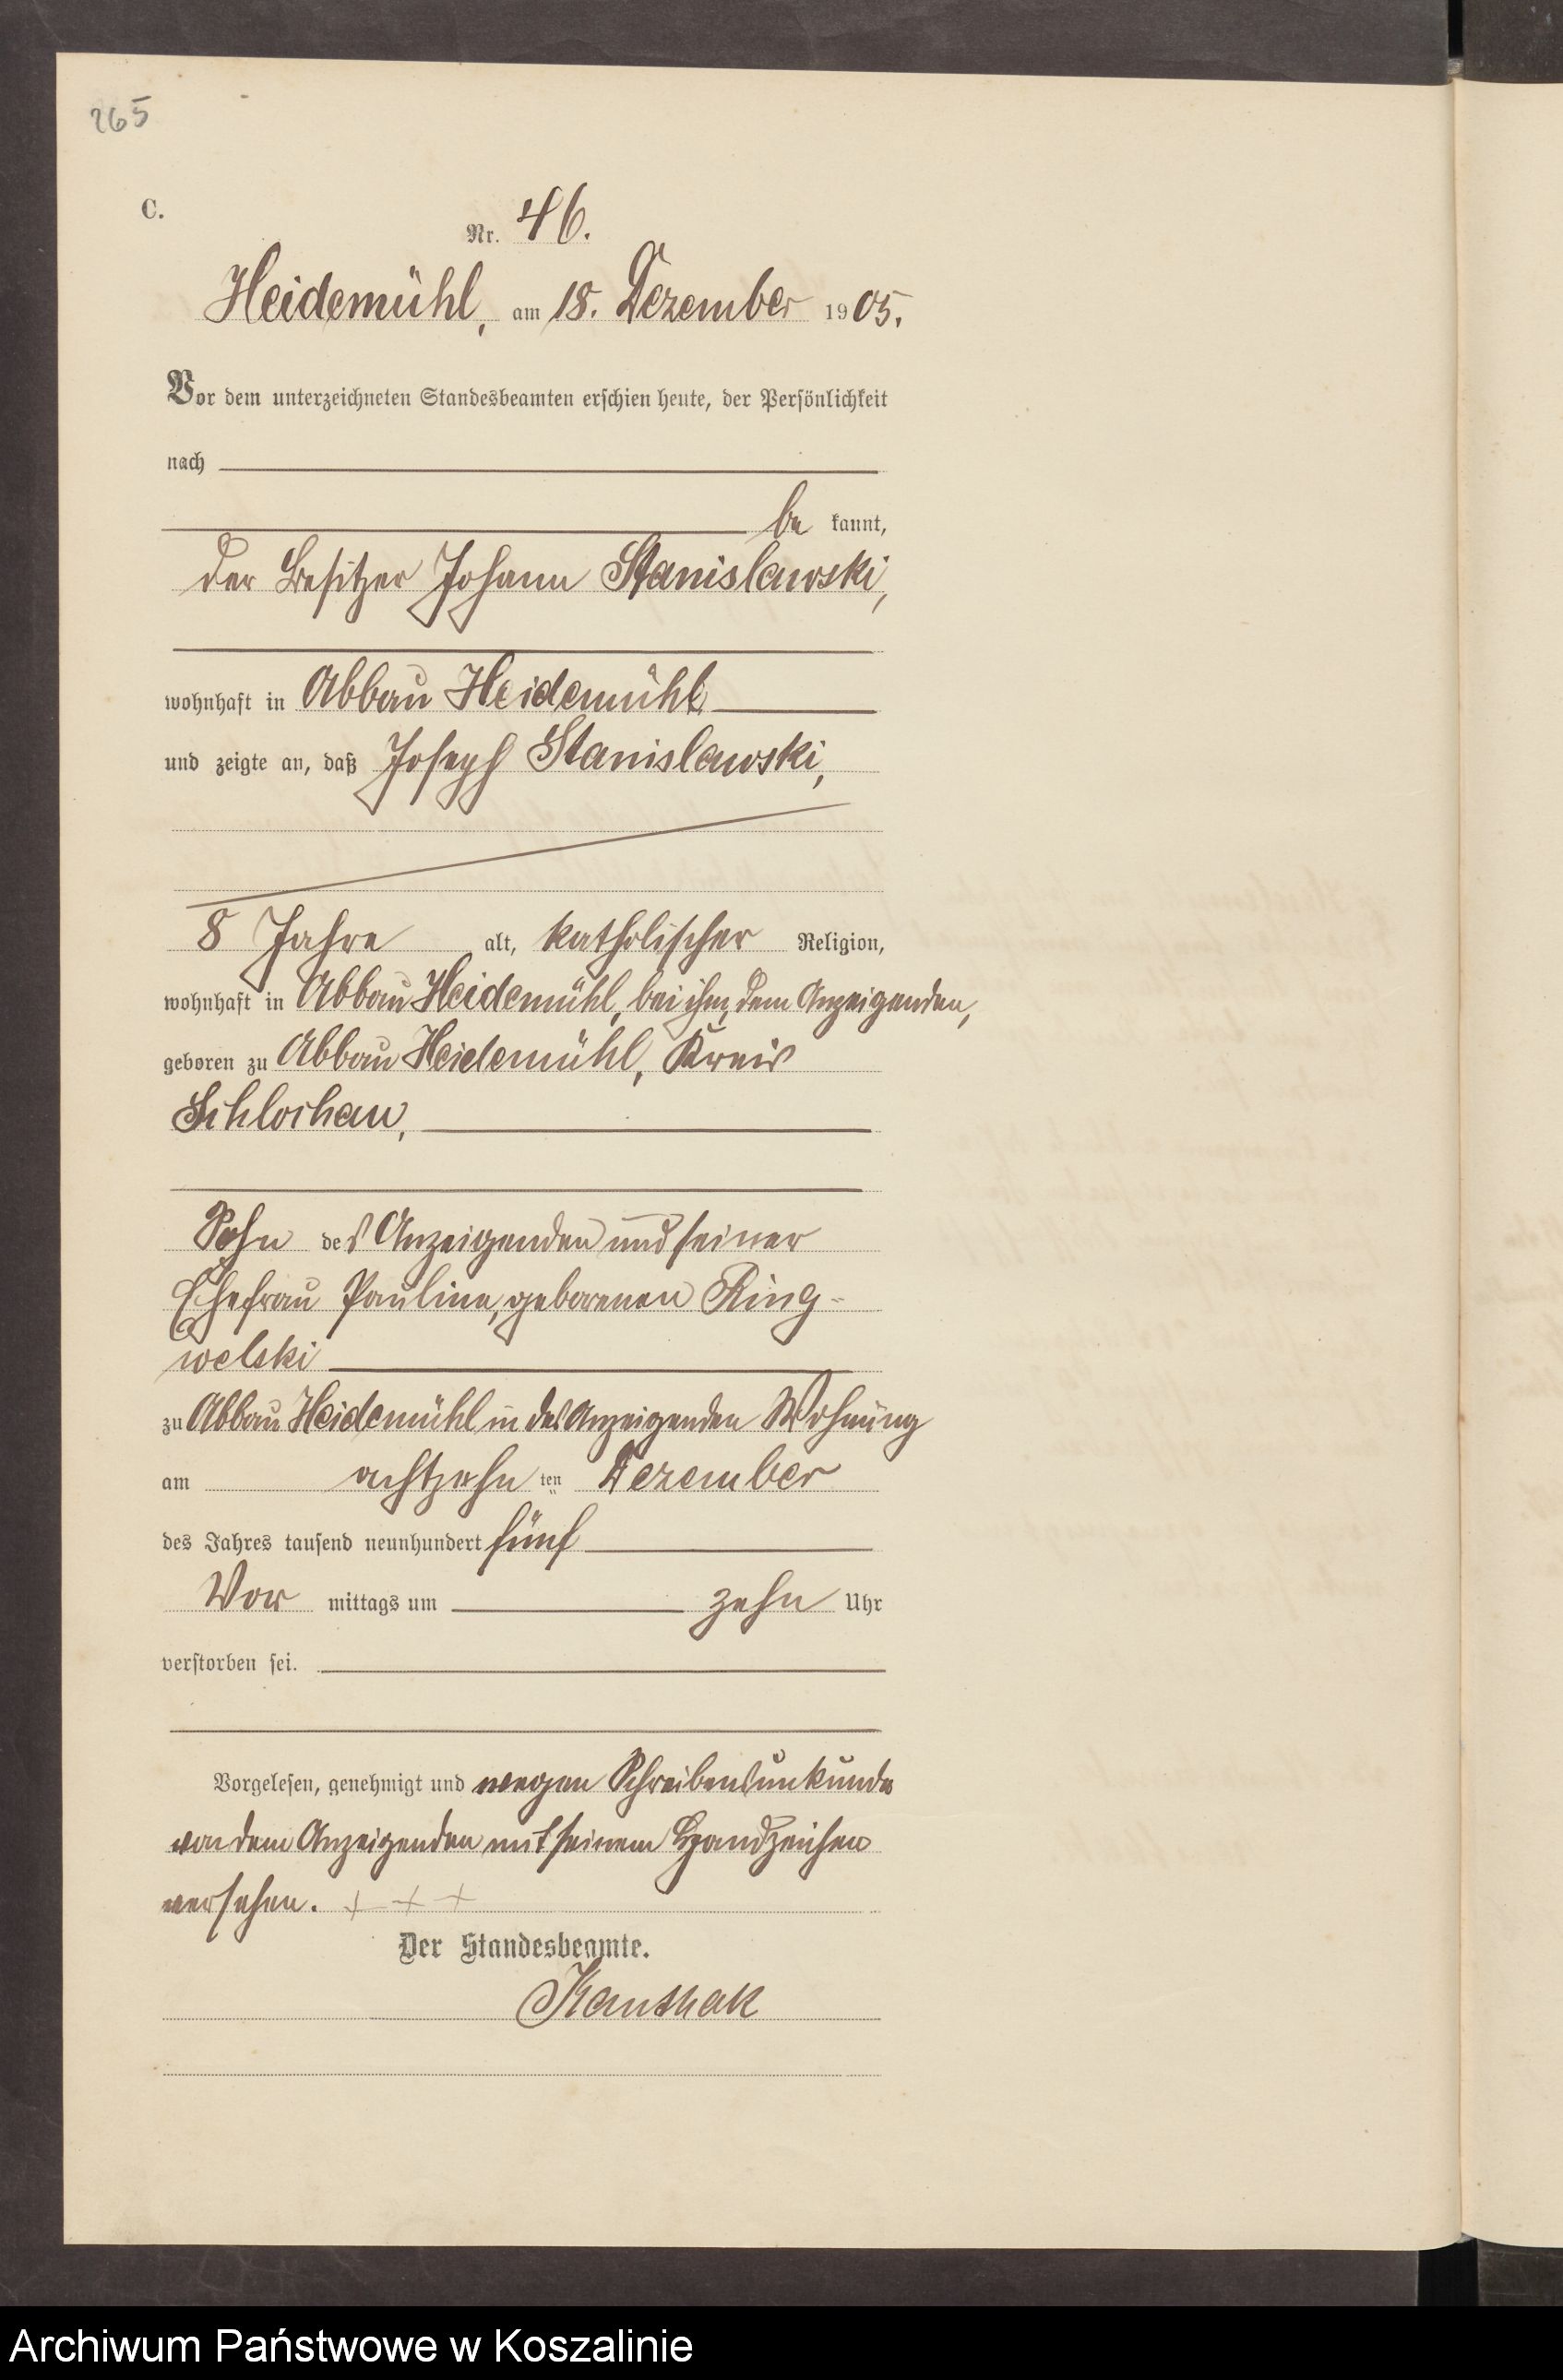 265
C.
Nr. 46.
Heidemühl, am 18. Dezember 1905.
Vor dem unterzeichneten Standesbeamten erschien heute, der Persönlichkeit
nach
be kannt,
der Besitzer Johann Stanislawski,
wohnhaft in Abbau Heidemühl
und zeigte an, daß Joseph Stanislawski,
8 Jahre alt, katholischer Religion,
wohnhaft in Abbau Heidemühl, bei ihm, dem Anzeigenden,
geboren zu Abbau Heidemühl, Kreis
Schlochau,
Sohn des Anzeigenden und seiner
Ehefrau Pauline, geborenen Ring-
welski
zu Abbau Heidemühl in des Anzeigenden Wohnung
am achtzehn ten Dezember
des Jahres tausend neunhundert fünf
Vor mittags um zehn Uhr
verstorben sei.
Vorgelesen, genehmigt und wegen Schreibensunkunde
von dem Anzeigenden mit seinem Handzeichen
versehen. + + +
Der Standesbeamte.
Archiwum Państwowe w Koszalinie